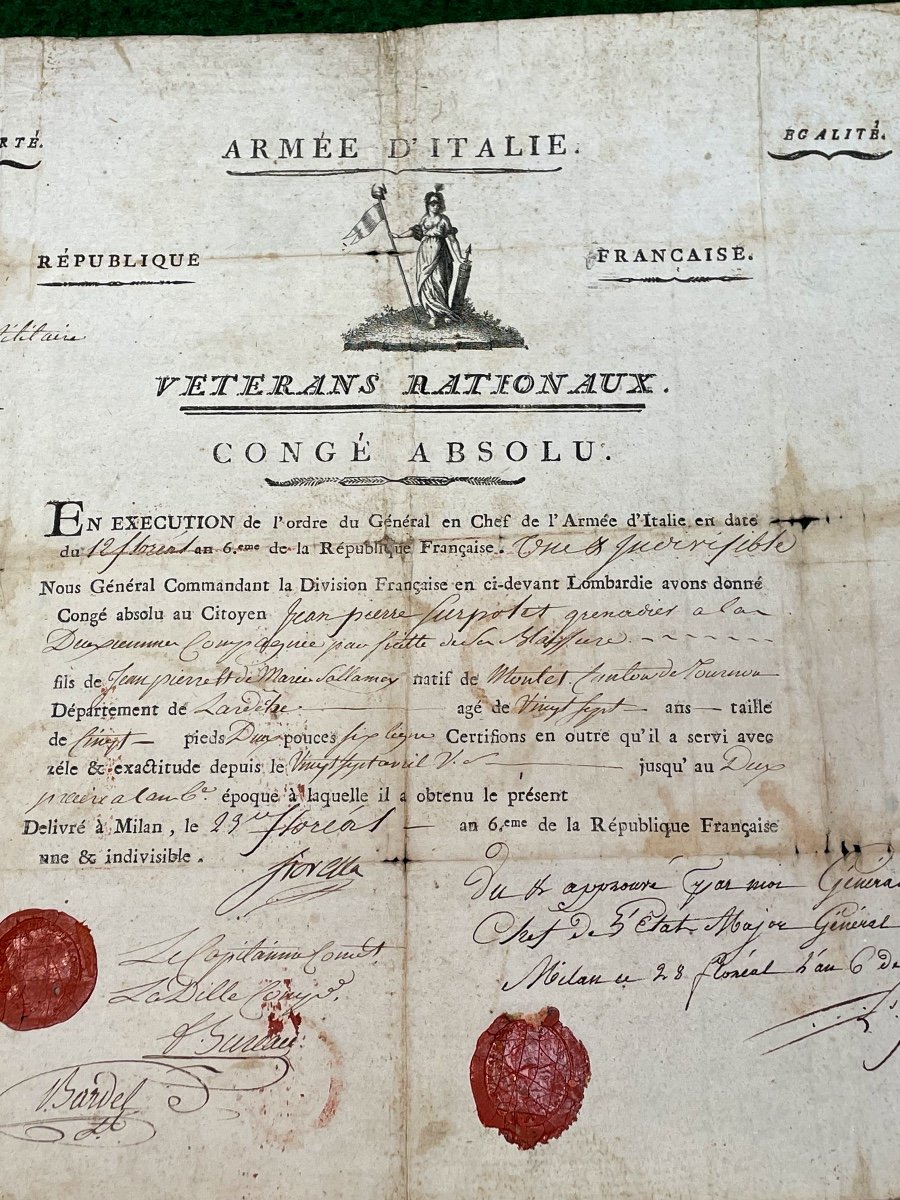 RTÉ.
ARMÉE D'ITALIE.
EGALITÉ.
RÉPUBLIQUE FRANCAISE.
VETERANS NATIONAUX.
CONGÉ ABSOLU.
EN EXECUTION de l'ordre du Général en Chef de l'Armée d'Italie en date
du 12 floreal an 6.eme de la République Française. Une & Indivisible
Nous Général Commandant la Division Française en ci-devant Lombardie avons donné
Congé absolu au Citoyen Jean pierre grenadier a la
Compagnie par suitte de sa Blessure
fils de Jean pierre et de Marie natif de Canton de Tournon
Département de Lardeche agé de Vingt Sept ans taille
de Cinqt pieds Deux pouces six ligne Certifions en outre qu'il a servi avec
zéle & exactitude depuis le Vingt Sept avril V. S. jusqu' au Deux
an 6.e époque à laquelle il a obtenu le présent
Delivré à Milan, le 23 floreal an 6.eme de la République Française
une & indivisible.
fiorella
Vu & approuvé par moi Général
Chef de l'Etat Major Général
Milan ce 28 floréal l'an 6 de
Le Capitaine Comdt.
La Dille Comp.
Bardel